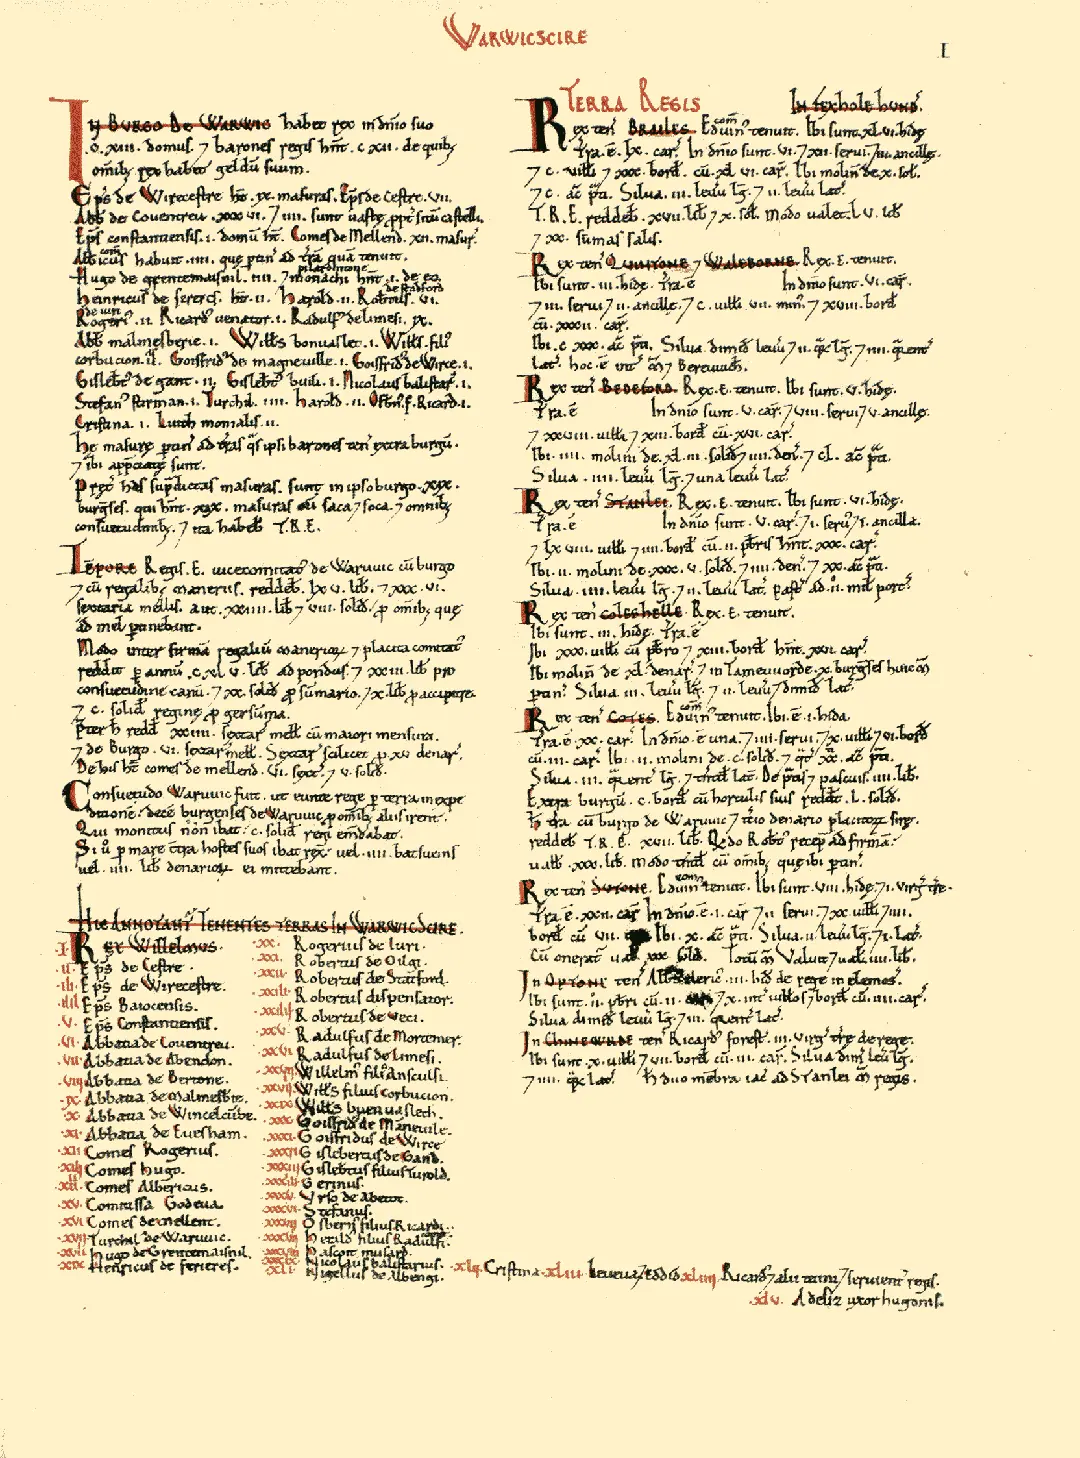 VARWICSCIRE
I
In Burgo De Warwic habet rex in dn̄io suo
.c.xiii. domus. ⁊ barones regis hn̄t .c.xii. de quib;
omib; rex habet geldū suum.
Ep̄s de Wirecestre ht̄ .ix. masuras. Ep̄s de Cestre .vii.
Abb̄ de Couentreu .xxxvi. ⁊ .iiii. sunt uastę ꝓpt̄ sitū castelli.
Ep̄s constantiensis .i. domū ht̄. Comes de Mellend .xii. masur'.
com̄
Albicus habuit .iiii. que ꝑtin̄ ad t̄ra quā tenuit.
Hugo de grentemaisnil .iiii. ⁊ monachi hn̄t .i. de eo.
de Stadford
Henricus de fereres ht̄ .ii. Harold .ii. Rotb̄tus .vi.
de iuri
Rogeri' .ii. Ricard' uenator .i. Radulf' de limesi .ix.
Abb̄ malmesberie .i. Will's bonuaslet .i. Will's fili'
corbucion .ii. Goisfrid' de magneuille .i. Goisfrid' de Wirce .i.
Gislebt' de gant .ii. Gislebt' buili .i. Nicolaus balistar' .i.
Stefan' stirman .i. Turchil .iiii. Harold .ii. Osbn̄ .f. Ricard .i.
Cristina .i. Luith monialis .ii.
He masurę ꝑtin̄ ad t̄ras q̄s ipsi barones ten̄ extra burgū.
⁊ ibi app̄ciatę sunt.
Preť has sup̄dictas masuras. sunt in ipso burgo .xix.
burgses. qui hn̄t .xix. masuras cū saca ⁊ soca ⁊ omib;
consuetudinib; ⁊ ita habeb̄ T.R.E.
Tēpore Regis .E. uicecomitat' de Waruuic cū burgo
⁊ cū regalib; maneriis. reddeb̄ .lxv. lib̄. ⁊ .xxxvi.
sextaria mellis. aut .xxiiii. lib̄ ⁊ viii. solid' ꝓ omib; que
ad mel ꝑtinebant.
Modo inter firmā regaliū manerioꝝ ⁊ placita comitat'
reddit ꝑ annū .c.xl.v. lib̄ ad pondus. ⁊ xxiii. lib̄ pro
consuetudine canū. ⁊ xx. solid' ꝓ sūmario. ⁊ x. lib̄ ꝓ accipitre
⁊ c. solid' reginę ꝓ gersūma.
Preter h̄ redd' xxiiii. sextar' mell' cū maiori mensura.
⁊ de Burgo .vi. sextar' mell'. Sextar' scilicet ꝓ xv denar'.
De his ht̄ comes de mellend .vi. sext' ⁊ v. solid'.
Consuetudo Waruuic fuit. ut eunte rege ꝑ terrā in expe
ditionē: decē burgenses de Waruuic ꝓ omib; aliis irent.
Qui monitus non ibat: c. solid' regi em̄dabat.
Si ū ꝑ mare cōtra hostes suos ibat rex: uel .iiii. batsueins
uel .iiii. lib̄ denarioꝝ ei mittebant.
Hic Annotant' Tenentes terras In Warwicscire.
.I. Rex Willelmus.
.ii. Ep̄s de Cestre.
.iii. Ep̄s de Wirecestre.
.iiii. Ep̄s Baiocensis.
.v. Ep̄s Constantiensis.
.vi. Abbatia de Couentreu.
.vii. Abbatia de Abendon.
.viii. Abbatia de Bertone.
.ix. Abbatia de Malmesb̄ie.
.x. Abbatia de Wincelcūbe.
.xi. Abbatia de Euesham.
.xii. Comes Rogerius.
.xiii. Comes Hugo.
.xiiii. Comes Albericus.
.xv. Comitissa Godeua
.xvi. Comes de mellent.
.xvii. Turchil de Waruuic.
.xviii. Hugo de Grentemaisnil.
.xix. Henricus de ferieres.
.xx. Rogerius de Iuri.
.xxi. Robertus de Oilgi.
.xxii. Robertus de Statford.
.xxiii. Robertus dispensator.
.xxiiii. Robertus de veci.
.xxv. Radulfus de Mortemer.
.xxvi. Radulfus de Limesi.
.xxvii. Willelm' fili' Ansculfi.
.xxviii. Will's filius corbucion.
.xxix. Will's buenuasleth.
.xxx. Goisfrid' de Maneuile.
.xxxi. Goisfridus de Wirce
.xxxii. Gislebertus de Gand.
.xxxiii. Gislebtus filius turold.
.xxxiiii. Gerinus.
.xxxv. Vrso de abetot.
.xxxvi. Stefanus.
.xxxvii. Osbern' filius Ricardi.
.xxxviii. Herald filius Radulfi.
Hascoit musard.
Nicolaus balistarius.
.xli. Nigellus de albengi.
.xlii. Cristina .xliii. Leueua ⁊ eddid .xliiii. Ricard' ⁊ alii taini ⁊ seruient' regis.
.xlv. Adeliz uxor hugonis.
Terra Regis In fexhole hund'.
com̄
Rex ten' Brailes. Eduin' tenuit. Ibi sunt .xl.vi. hidę
T̄ra .ē. lx. car'. In dn̄io sunt .vi. ⁊ xii. serui ⁊ iii. ancillę.
⁊ c. uill'i ⁊ xxx. bord' cū .xl vi. car'. Ibi molin̄ de .x. sol'.
⁊ c. ac̄ p̄ti. Silua .iii. leuū lḡ. ⁊ ii. leuū lat'.
T.R.E. reddeb̄ .xvii. lib̄ ⁊ x. sol'. Modo ualet .lv. lib̄
⁊ xx. sūmas salis.
Rex ten' Quintone ⁊ Waleborne. Rex .E. tenuit.
Ibi sunt .iii. hidę. T̄ra ē In dn̄io sunt .vi. car'.
⁊ iii. serui ⁊ ii. ancillę. ⁊ c. uill'i .vii. min'. ⁊ xviii. bord'
cū .xxxii. car'.
Ibi .c.xxx. ac̄ p̄ti. Silua dimid' leuū ⁊ ii. q̄rc lḡ. ⁊ iiii. q̄rent'
lat'.
Rex ten' Bedeford. Rex .E. tenuit. Ibi sunt .v. hidę.
T̄ra .ē In dn̄io sunt .v. car'. ⁊ viii. serui ⁊ v. ancillę.
⁊ xxviii. uill'i ⁊ xiii. bord' cū .xvi. car'.
Ibi .iiii. molini de .xl.iii. solid' ⁊ iiii. den'. ⁊ cl. ac̄ p̄ti.
Silua .iiii. leuū lḡ. ⁊ una leuū lat'.
Rex ten' Stanlei. Rex .E. tenuit. Ibi sunt .vi. hidę.
T̄ra .ē In dn̄io sunt .v. car'. ⁊ i. seru' ⁊ i. ancilla.
⁊ lxviii. uill'i ⁊ iiii. bord' cū .ii. pb̄ris hn̄t .xxx. car'.
Ibi .ii. molini de .xxxv. solid' ⁊ iiii. den'. ⁊ xx. ac̄ p̄ti.
Silua .iiii. leuū lḡ. ⁊ ii. leuū lat'. past' ad .ii. mił porc'.
Rex ten' Coleshelle. Rex .E. tenuit.
Ibi sunt .iii. hidę. T̄ra .ē
Ibi .xxx. uill'i cū pb̄ro ⁊ xiii. bord' hn̄t .xvi. car'.
Ibi molin̄ de .xl. denar' ⁊ in Tameuuorde .x. burgses huic m̄
ꝑtin'. Silua .iii. leuū lḡ. ⁊ ii. leuū ⁊ dimid' lat'.
com̄
Rex ten' Cotes. Eduin' tenuit. Ibi .ē. i. hida.
T̄ra .ē. xx. car'. In dn̄io .ē una. ⁊ iiii. serui. ⁊ x. uill'i ⁊ vi. bord'
cū .iii. car'. Ibi .ii. molini de .c. solid'.
Silua .iii. q̄rent' lḡ. ⁊ tntd' lat'. De p̄tis ⁊ pascuis .iiii. lib̄.
Extra burgū .c. bord' cū hortulis suis reddt' .l. solid'.
H̄ t̄ra cū burgo de Waruuic ⁊ tcio denario placitoꝝ sirę.
reddeb̄ T.R.E. xvii. lib̄. Qdo Rotb̄t recep' ad firmā:
ualb̄ .xxx. lib̄. Modo tntd' cū omib; quę ibi ꝑtin'.
com̄
Rex ten' Sutone. Eduin' tenuit. Ibi sunt .viii. hidę. ⁊ i. virg' t̄rę.
T̄ra .ē. xxii. car'. In dn̄io .ē. i. car' ⁊ ii. serui. ⁊ xx. uill'i ⁊ iiii.
bord' cū .vii. car'. Ibi .x. ac̄ p̄ti. Silua .ii. leuū lḡ. ⁊ i. lat'.
Cū onerat' ual' xxx sol'. Totū m̄ Valuit ⁊ ual' .iiii. lib̄.
In Optone ten' Albericus .iii. hid' de rege in elemos'.
Ibi sunt .ii. pb̄ri cū .ii. car' ⁊ x. int' uill'os ⁊ bord' cū .iii. car'.
Silua dimid' leuū lḡ. ⁊ iii. q̄rent' lat'.
In Chinewrde ten' Ricard' forest' .iii. virg' t̄rę de rege.
Ibi sunt .x. uill'i ⁊ vii. bord' cū .iii. car'. Silua dim' leū lḡ.
⁊ iiii. q̄rc lat'. H̄ duo mēbra iac' ad Stanlei m̄ regis.